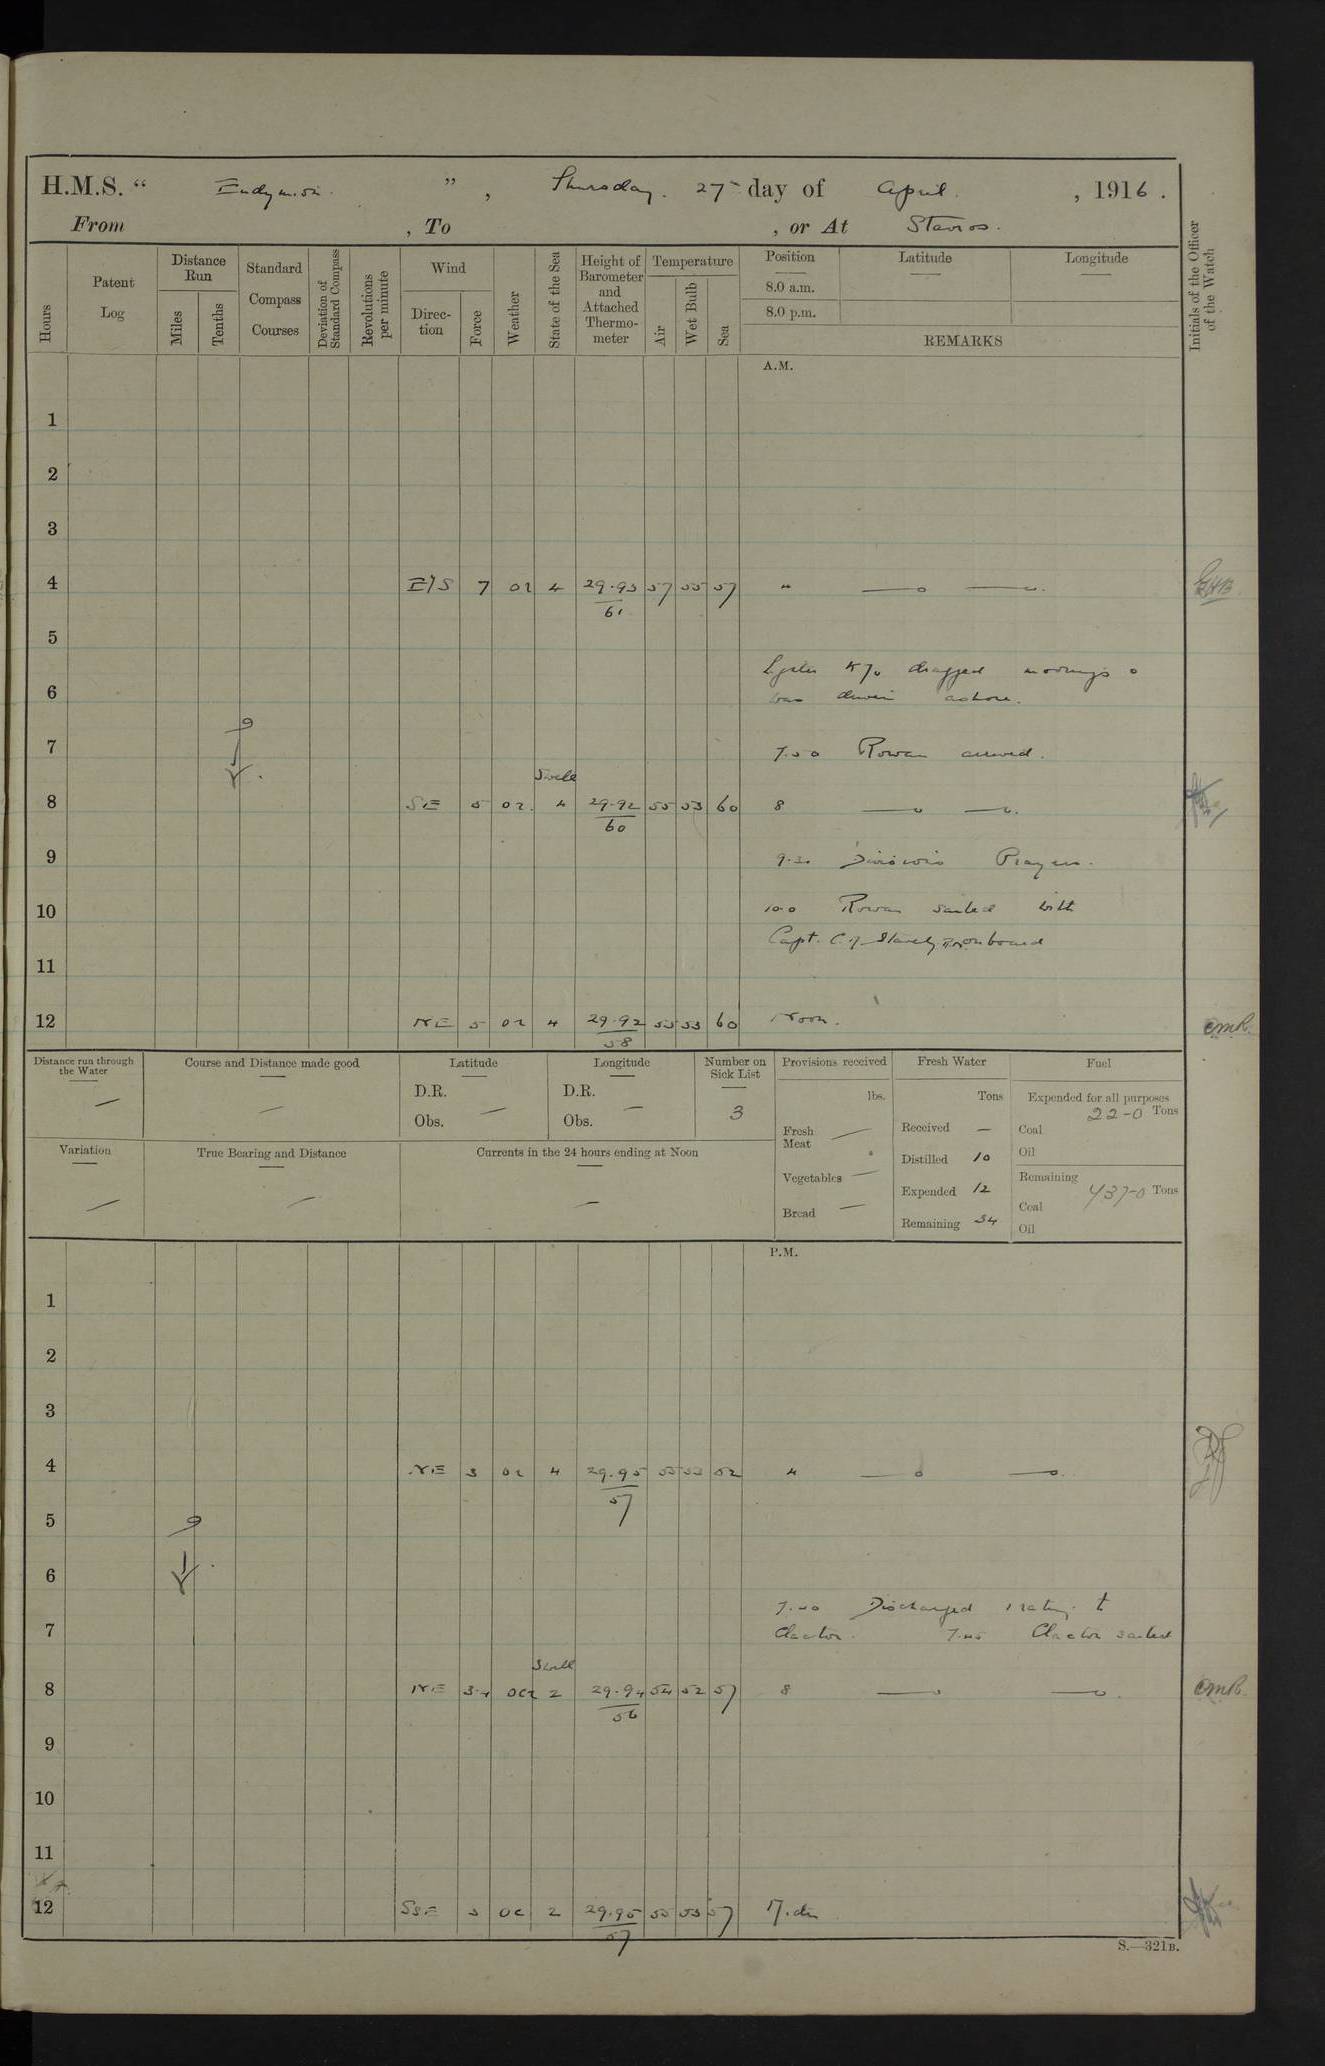 H.M.S. " Endymion " , Thursday. 27th day of April , 1916.
From , To , or At Stavros.
Hours
Patent Log
Distance Run
Miles
Tenths
Standard Compass Courses
Deviation of Standard Compass
Revolutions per minute
Wind
Direction
Force
Weather
State of the Sea
Height of Barometer and Attached Thermometer
Temperature
Air
Wet Bulb
Sea
Position
8.0 a.m.
8.0 p.m.
Latitude
Longitude
REMARKS
Initials of the Officer of the Watch
A.M.
1
2
3
4 7 or 4 29.93 57 55 57 4
61
5
dragged moorings &
6 was driven ashore.
7 7.50 Rowan arrived.
Swell
8 SE 5 or. 4 29.92 55 53 60 8
60
9 9.30 Divisions Prayers.
10 10.0 Rowan sailed with
Capt. on board
11
12 NE 5 or 4 29.92 55 53 60 Noon. CMR
58
Distance run through the Water
Course and Distance made good
Latitude
D.R.
Obs.
Longitude
D.R.
Obs.
Number on Sick List
3
Provisions received
lbs.
Fresh Meat
Vegetables
Bread
Fresh Water
Tons
Received —
Distilled 10
Expended 12
Remaining 34
Fuel
Expended for all purposes
22-0 Tons
Coal
Oil
Remaining
437-0 Tons
Coal
Oil
Variation
True Bearing and Distance
Currents in the 24 hours ending at Noon
P.M.
1
2
3
4 NE 3 or 4 29.95 55 53 52 4
57
5
6
Discharged 1 rating to
7 Clacton. 7.45 Clacton sailed
Swell
8 NE 3.4 ocr 2 29.94 54 52 57 8 CMR
56
9
10
11
12 SSE 3 oc 2 29.95 55 53 57 M.dn
57
S.—321B.